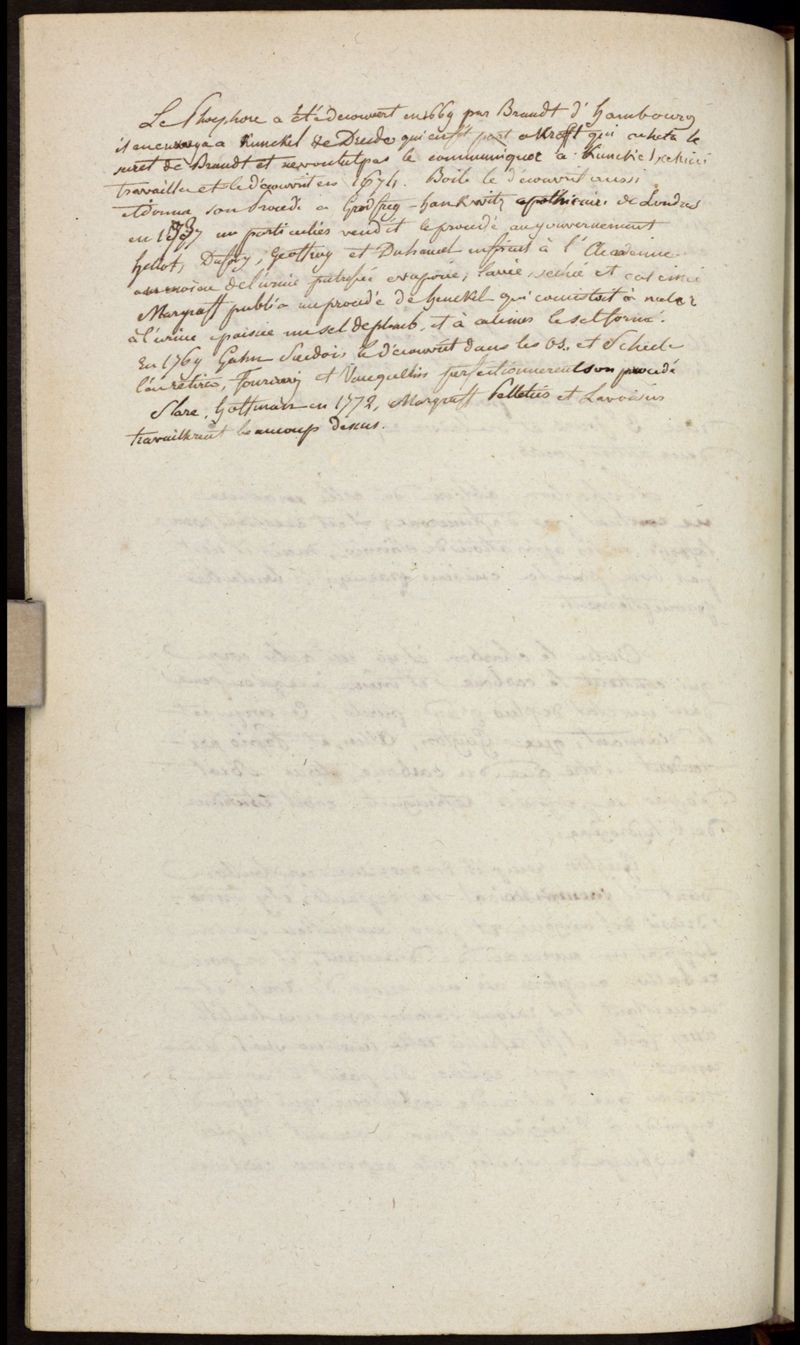 Le Phosphore a été découvert en 1669 par Brandt d' hambourg
il en envoya a Kunckel de Dresde qui en fit part a Kraft qui acheta le
secret de Brandt et ne voulut pas le communiquer a Kunckel celui ci
travailla et le découvrit en 1674. Boile le découvrit aussi
et donna son procedé a Godfrey-hankwitz apothicaire de Londres
en 1737 un particulier vendit le procedé au gouvernement
hellot, Dufay, Geoffroy et Duhamel en firent à l' Academie
au moyen de l'urine putrefiée evaporée, lavée, sechée et calcinée
Margraff publia un procedé de henckel qui consistoit à meler
à l'urine epaissie un sel de plomb, et à calciner le sel formé.
En 1769 Gahn Suédois le découvrit dans les os. et Scheele
l'en retira, Fourcroy et Vauquelin perfectionnerent son procedé
Slare, hoffman en 1772, Margraff Pelletier et Lavoisier
travaillerent beaucoup dessus.